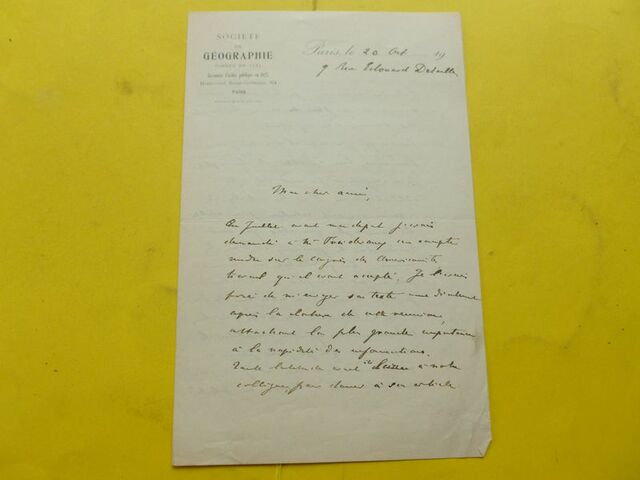 SOCIÉTÉ
DE
GÉOGRAPHIE
FONDÉE EN 1821
Reconnue d'utilité publique en 1827
Boulevard Saint-Germain, 184
PARIS
Paris, le 20 Oct 19
9 Rue Edouard Detaille
Mon cher ami,
En Juillet avant mon départ j'avais
demandé à Mr un compte
rendu sur le Congrès des Américanistes
travail qu'il avait accepté. Je l'avais
prié de m'envoyer son texte
après la clôture de cette réunion,
attachant la plus grande importance
à la rapidité des informations.
Toute latitude avait été laissée à notre
collègue, pour donner à son article